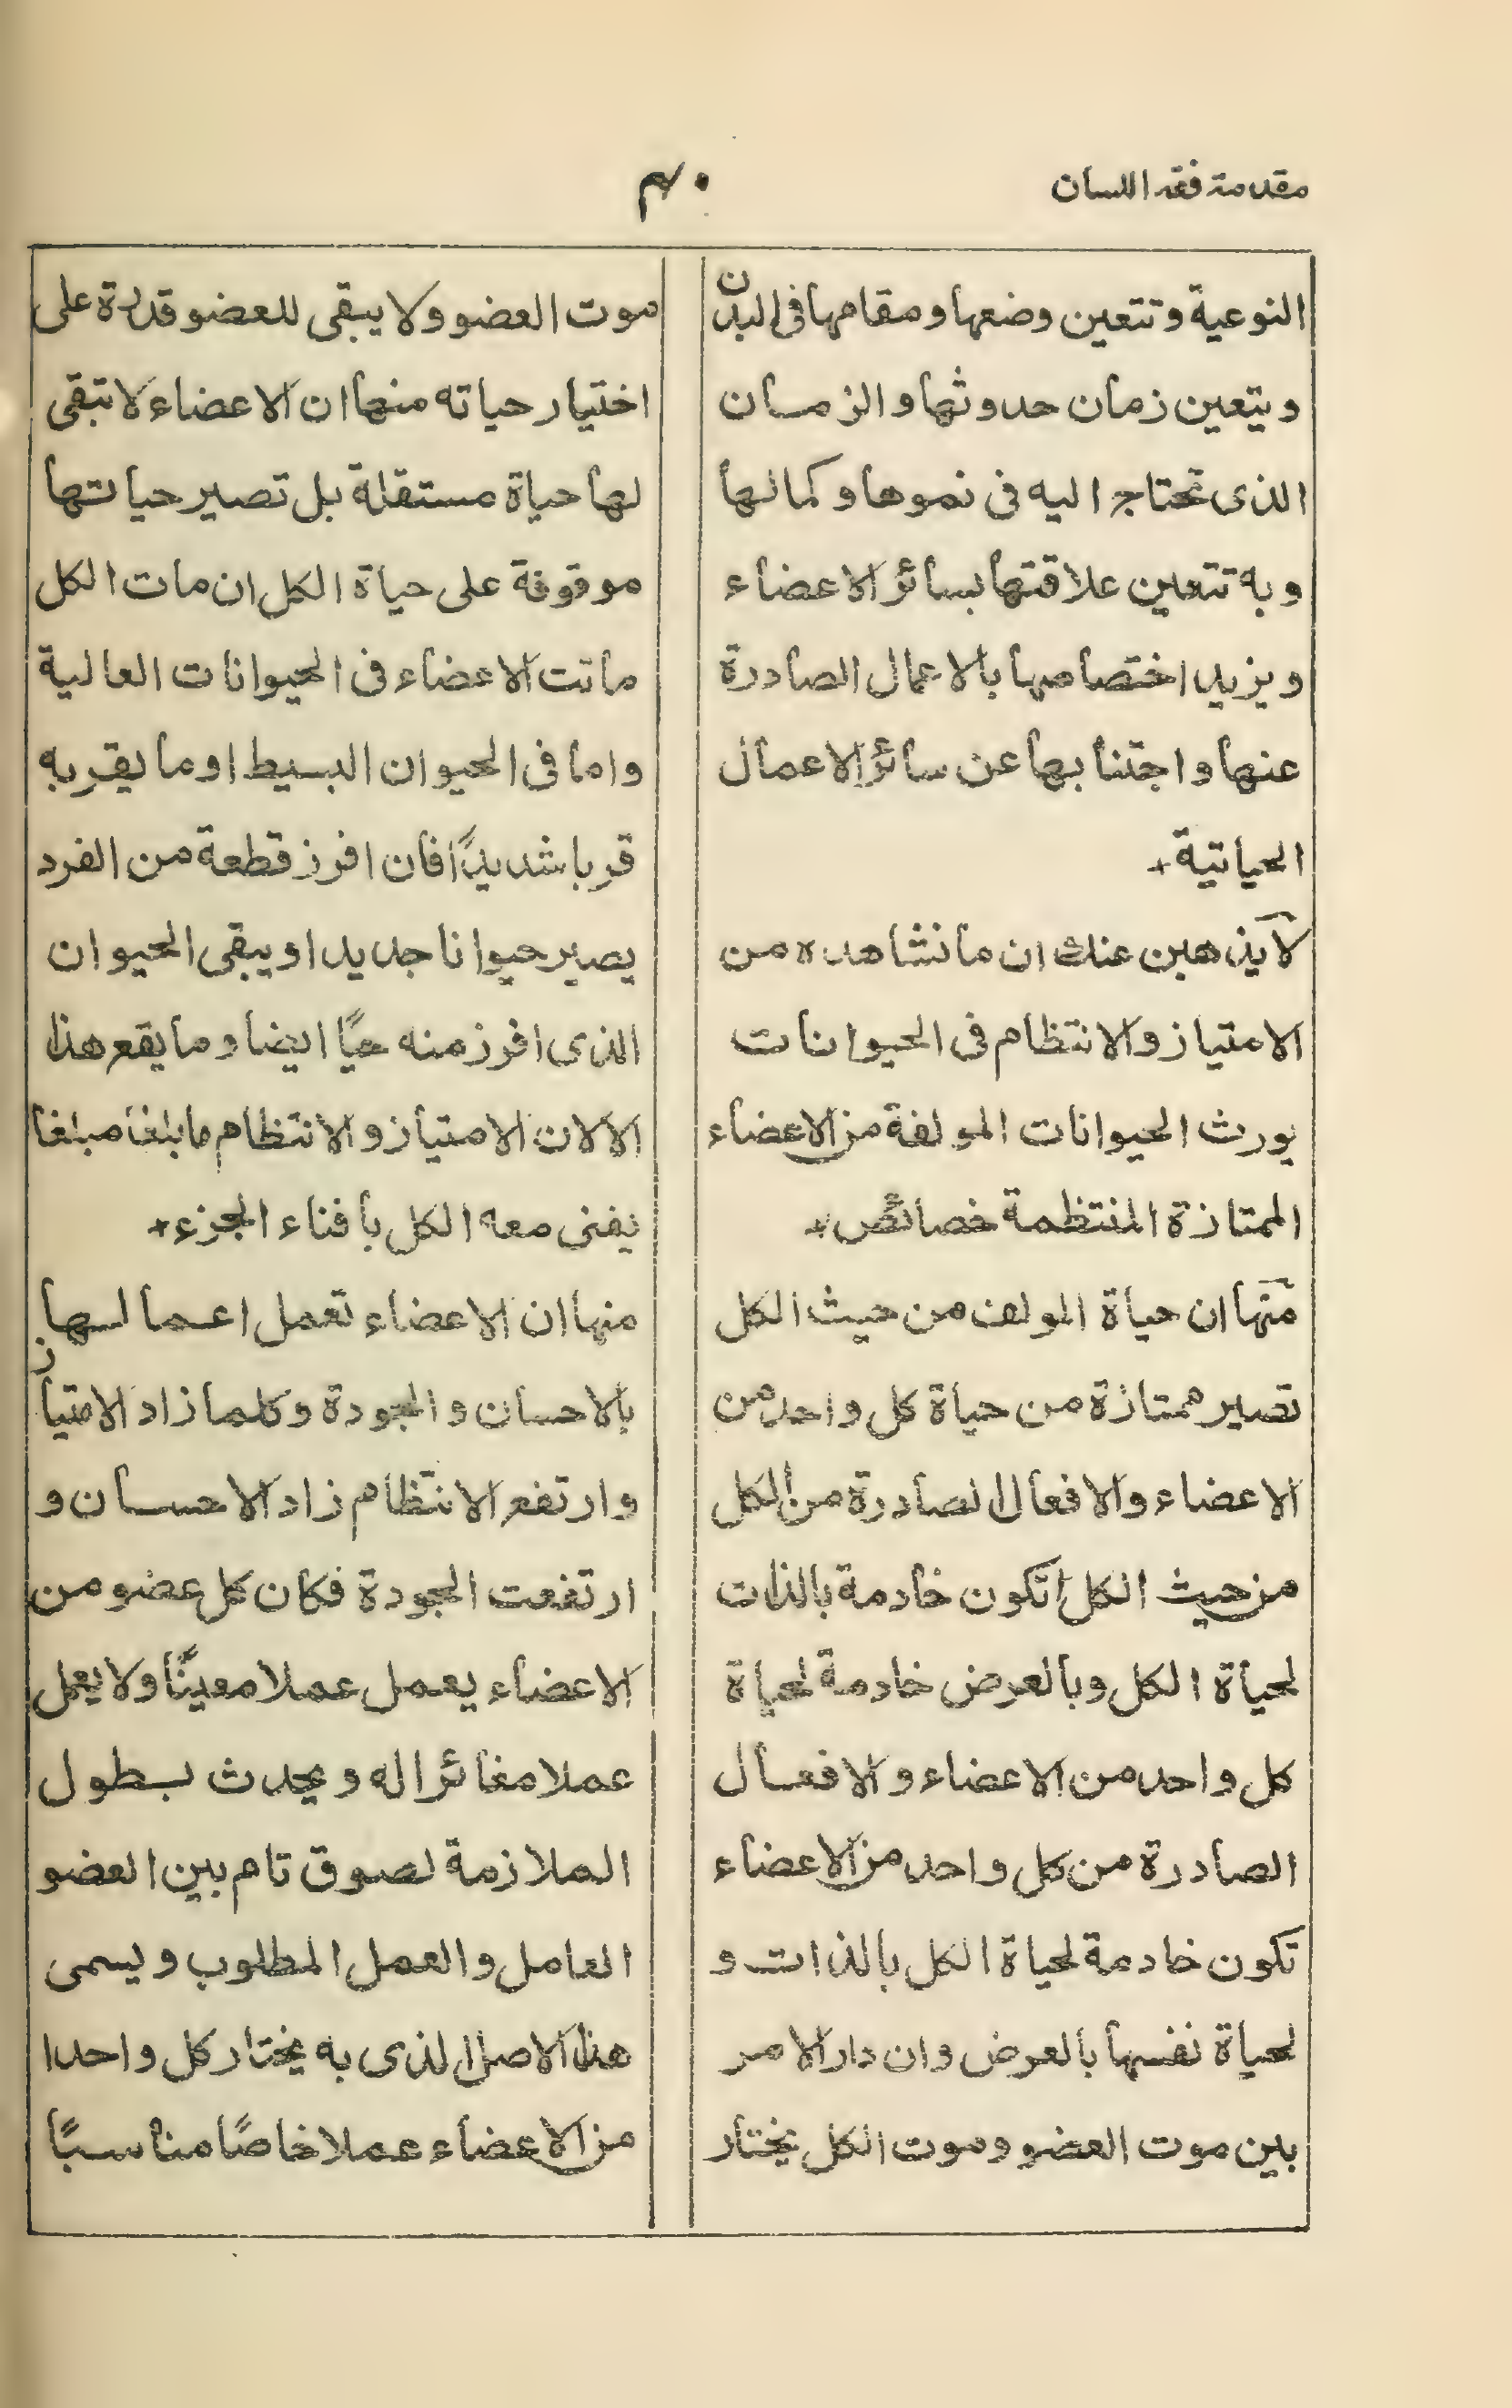 مقدمة فقه اللسان
۴۰
النوعية و تتعين وضعها و مقامها فى البدن
و يتعين زمان حدوثها و الزمان
الذى تحتاج اليه فى نموها و كمالها
و به تتعين علاقتها بسائر الاعضاء
و يزيد اختصاصها بالاعمال الصادرة
عنها و اجتنابها عن سائر الاعمال
الحياتية +
لا يذهبن عنك ان ما نشاهده من
الامتياز و الانتظام فى الحيوانات
يورث الحيوانات المولفة من الاعضاء
الممتازة المنتظمة خصائص +
منها ان حياة المولف من حيث الكل
تصير ممتازة من حياة كل واحد من
الاعضاء و الافعال الصادرة من الكل
من حيث الكل تكون خادمة بالذات
لحياة الكل و بالعرض خادمة لحياة
كل واحد من الاعضاء و الافعال
الصادرة من كل واحد من الاعضاء
تكون خادمة لحياة الكل بالذات و
لحياة نفسها بالعرض و ان دار الامر
بين موت العضو و موت الكل يختار
موت العضو و لا يبقى للعضو قدرة على
اختيار حياته منها ان الاعضاء لا تبقى
لها حياة مستقلة بل تصير حياتها
موقوفة على حياة الكل ان مات الكل
ماتت الاعضاء فى الحيوانات العالية
و اما فى الحيوان البسيط او ما يقربه
قربا شديدًا فان افرز قطعة من الفرد
يصير حيوانا جديدا و يبقى الحيوان
الذى افرز منه حيًا ايضا و ما يقع هذا
الا لان الامتياز و الانتظام ما بلغا مبلغا
يفنى معه الكل بافناء الجزء +
منها ان الاعضاء تعمل اعمالها
بالاحسان و الجودة و كلما زاد الامتياز
و ارتفع الانتظام زاد الاحسان و
ارتفعت الجودة فكان كل عضو من
الاعضاء يعمل عملا معينًا و لا يعمل
عملا مغائرا له و يحدث بطول
الملازمة لصوق تام بين العضو
العامل و العمل المطلوب و يسمى
هذا الاصل الذى به يختار كل واحدا
من الاعضاء عملا خاصًا مناسبًا